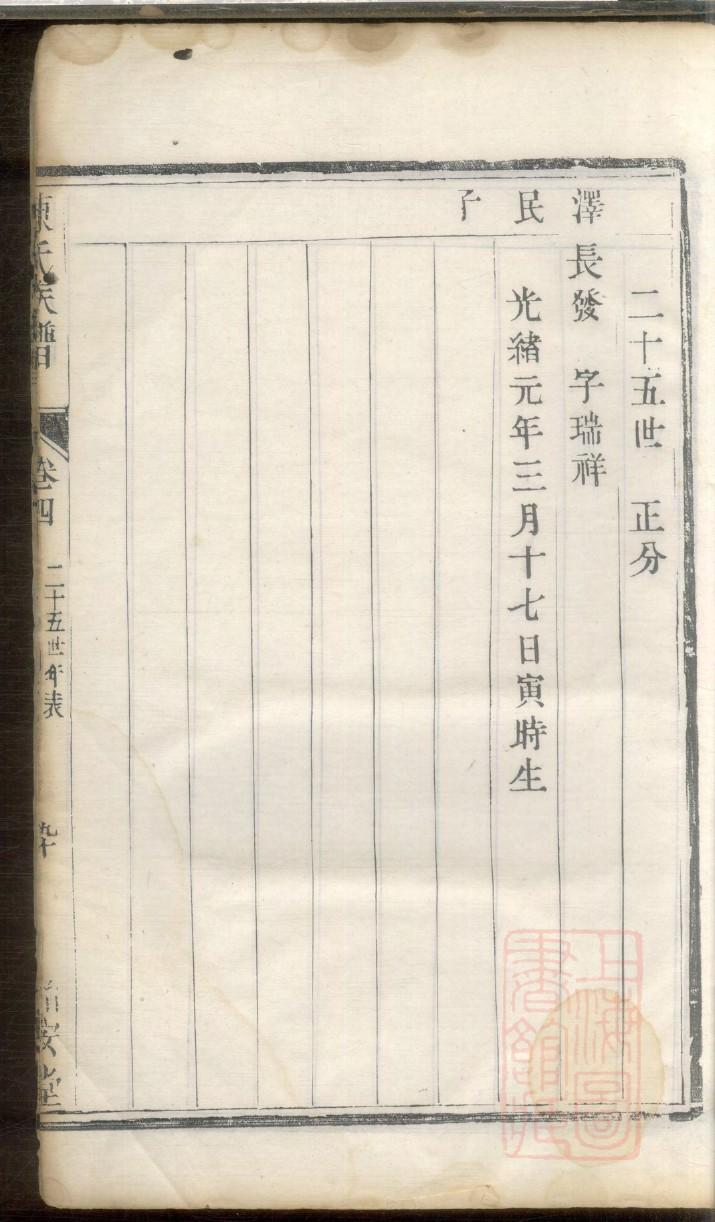 二十五世 正分
澤長發 字瑞祥
民 光緒元年三月十七日寅時生
子
陳氏族譜
卷四
二十五世年表
九十
堂
上海圖書館藏